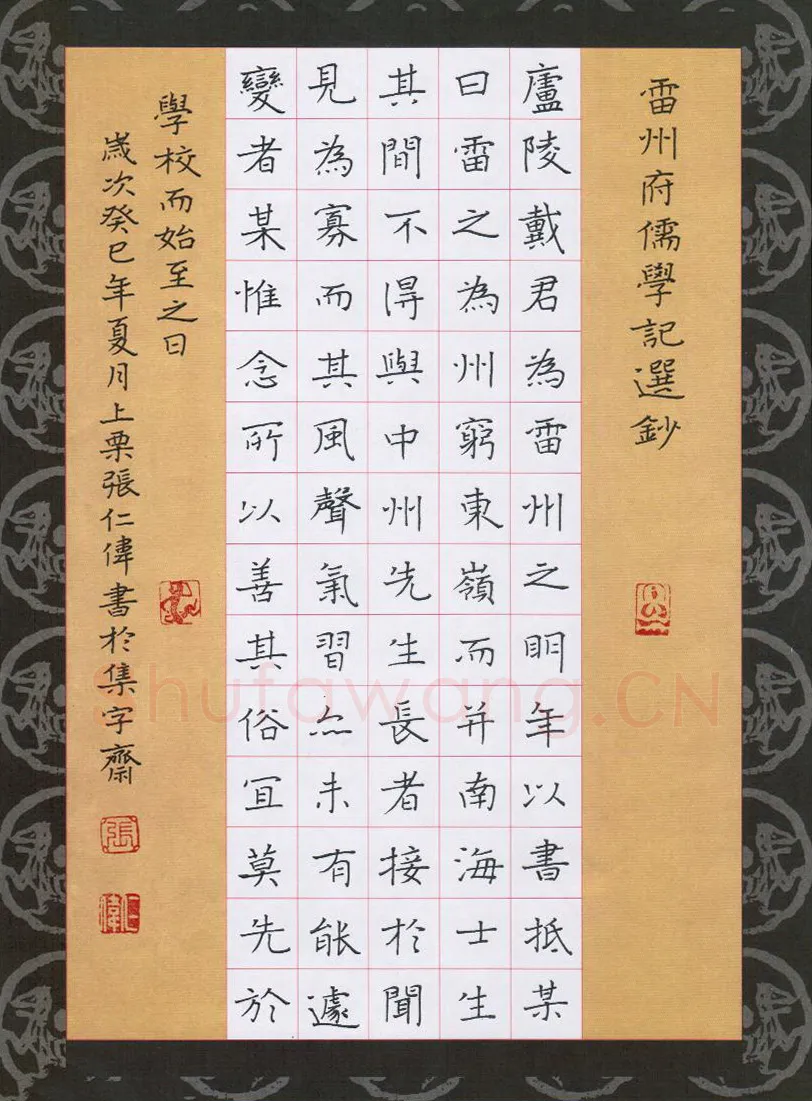 雷州府儒學記選鈔
廬陵戴君為雷州之明年以書抵某
曰雷之為州窮東嶺而并南海士生
其間不得與中州先生長者接於聞
見為寡而其風聲氣習亦未有能遽
變者某惟念所以善其俗宜莫先於
學校而始至之日
歲次癸巳年夏月上栗張仁偉書於集字齋
張
仁偉
Shufawang.CN